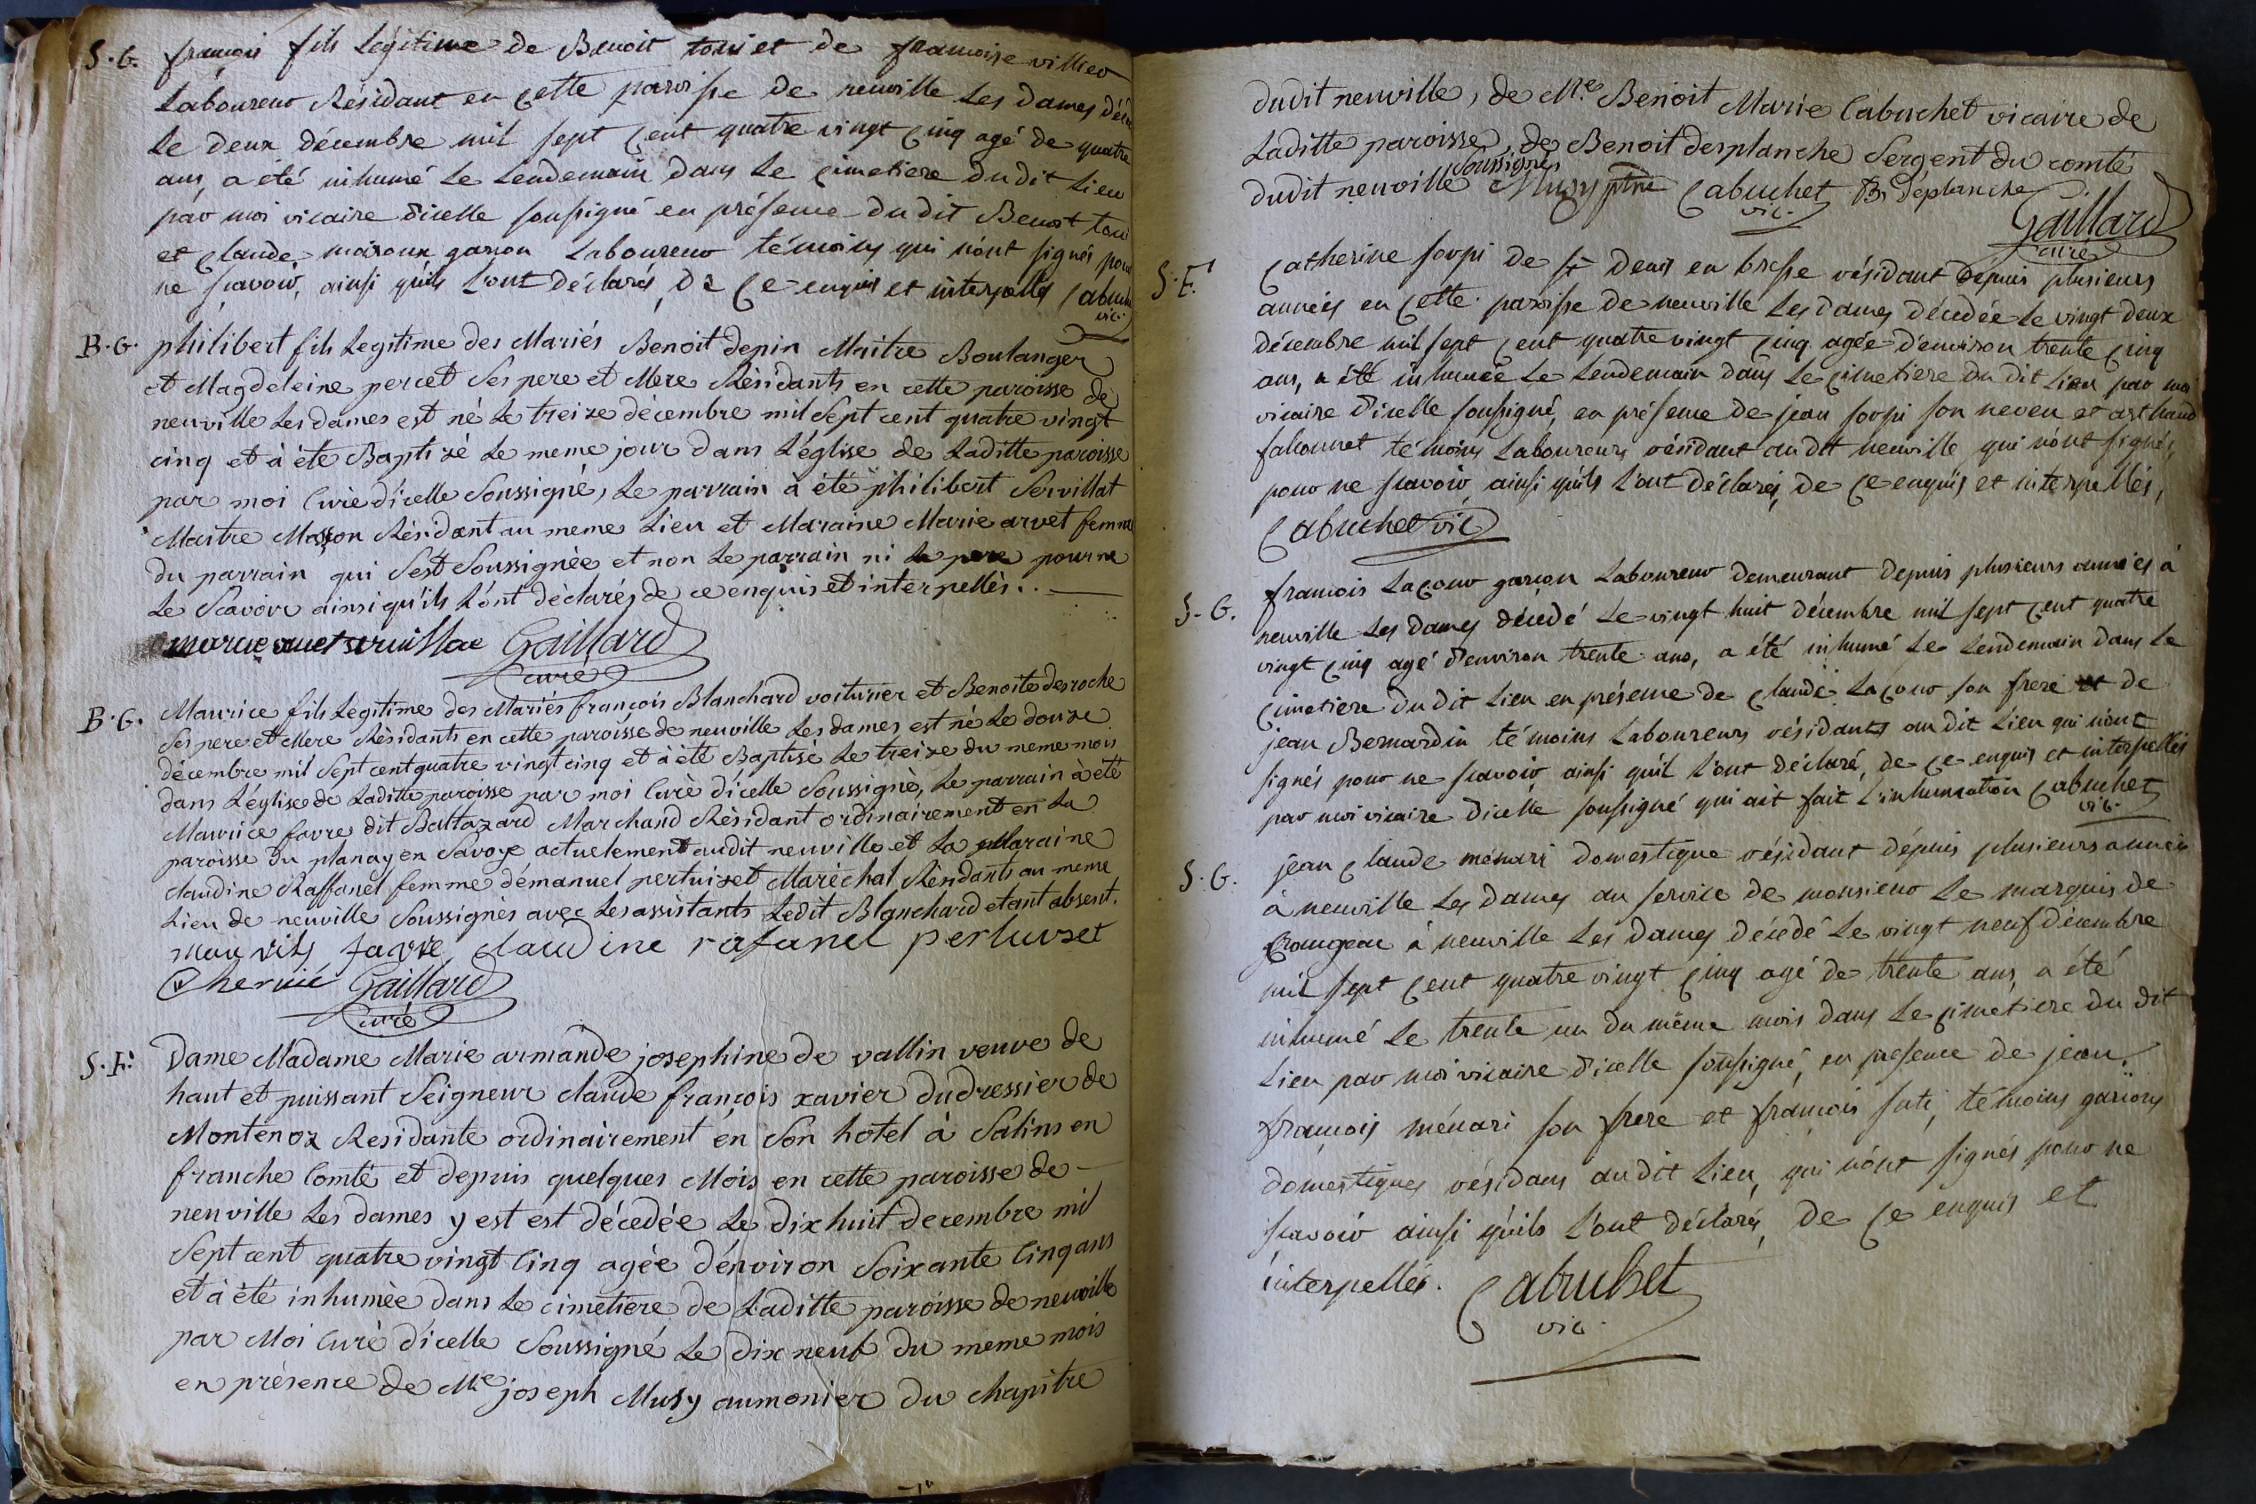 S.G. françois fils Légitime de Benoit touri et de francoise villier
Laboureur Résidant en cette paroisse de neuville Les dames
Le deux décembre mil sept cent quatre vingt cinq agé de quatre
ans, a été inhumé Le Lendemain dans Le cimetiere du dit Lieu
par moi vicaire d'icelle soussigné en présence du dit Benoit
et claude garcon Laboureur témoins qui n'ont signés pour
ne scavoir, ainsi qu'ils L'ont déclarés, de ce enquis et interpellés Cabuchet
vic.
B.G. philibert fils Legitime des Mariés Benoit depin Maitre Boulanger
et Magdeleine percet Ses pere et Mere Résidants en cette paroisse de
neuville Les dames est né Le treize décembre mil Sept cent quatre vingt
cinq et à été Baptizé Le meme jour dans L'église de Laditte paroisse
par moi Curé d'icelle Soussigné, Le parrain à été philibert Servillat
Maitre Masson Résidant au meme Lieu et Maraine Marie arvet femme
du parrain qui S'est Soussignée et non Le parrain, ni Le pere pour ne
Le Scavoir ainsi qu'ils L'ont déclarés de ce enquis et interpellés..
marie arvet servillat Gaillard
curé
B.G. Maurice fils Légitime des Mariés françois Blanchard voiturier et Benoite desroche
Ses pere et Mere Résidants en cette paroisse de neuville Les dames est né Le douze
décembre mil Sept cent quatre vingt cinq et à été Baptisé Le treize du meme mois
dans L'église de Laditte paroisse par moi Curé d'icelle Soussigné, Le parrain à été
Maurice favre dit Baltazard Marchand Résidant ordinairement en La
paroisse du planay en Savoye actuelement audit neuville et La Maraine
claudine Raffanel femme d'émanuel pertuizet Maréchal Résidants au meme
Lieu de neuville Soussignés avec Les assistants Ledit Blanchard etant absent.
favre claudine rafanel pertuvzet
Gaillard
curé
S.F. Dame Madame Marie armande josephine de vallin veuve de
haut et puissant Seigneur claude françois xavier dudressier de
Montenoz Residante ordinairement en Son hotel à Salins en
franche Comté et depuis quelques Mois en cette paroisse de
neuville Les dames y est est décedée Le dix huit decembre mil
Sept cent quatre vingt Cinq agée d'environ Soixante Cinq ans
et à été inhumée dans Le cimetiere de Laditte paroisse de neuville
par Moi Curé d'icelle Soussigné Le dix neuf du meme mois
en présence de Mre joseph Musy aumonier du chapitre
dudit neuville, de Mre Benoit Marie Cabuchet vicaire de
Laditte paroisse, de Benoit desplanche Sergent du comté
dudit neuville soussignés Musy ptre Cabuchet B. Déplanche
vic. Gaillard
curé
S.F. Catherine sorpi de St denis en bresse résidant depuis plusieurs
années en cette paroisse de neuville Les dames décedée Le vingt deux
décembre mil sept cent quatre vingt cinq agée d'environ trente cinq
ans, a été inhumée Le Lendemain dans Le cimetiere du dit Lieu par moi
vicaire d'icelle soussigné, en présence de jean sorpi son neveu et
témoins Laboureurs résidant au dit neuville qui n'ont signés,
pour ne scavoir, ainsi qu'ils L'ont déclarés, de ce enquis et interpellés,
Cabuchet vic
S.G. francois Lacour garcon Laboureur demeurant depuis plusieurs années à
neuville Les Dames décédé Le vingt huit décembre mil sept cent quatre
vingt cinq agé d'environ trente ans, a été inhumé Le Lendemain dans Le
cimetiere du dit Lieu en présence de claude Lacour son frere et de
jean Bernardin témoins Laboureurs résidants au dit Lieu qui n'ont
signés pour ne scavoir ainsi qu'il L'ont déclaré, de ce enquis et interpellés
par moi vicaire d'icelle soussigné qui ait fait L'inhumation Cabuchet
vic.
S.G. jean claude ménari domestique résidant dépuis plusieurs années
à neuville Les dames au service de monsieur Le marquis de
à neuville Les Dames décédé Le vingt neuf décembre
mil sept cent quatre vingt cinq agé de trente ans, a été
inhumé Le trente un du même mois dans Le cimetiere du dit
Lieu par moi vicaire d'icelle soussigné, en presence de jean
françois ménari son frere et françois témoins garcons
domestiques résidans au dit Lieu, qui n'ont signés pour ne
scavoir ainsi qu'ils L'ont déclarés, de ce enquis et
interpellés. Cabuchet
vic.